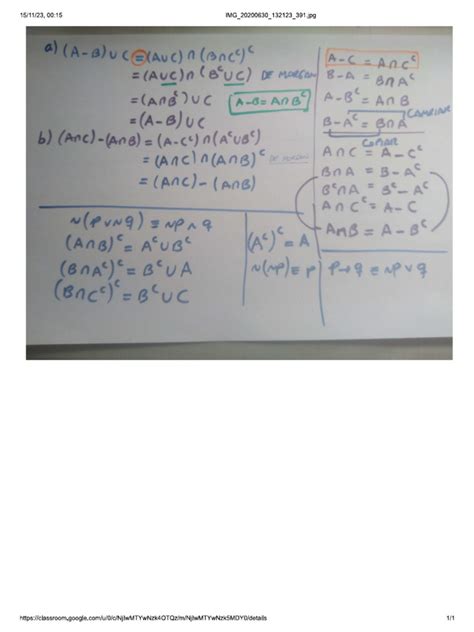 15/11/23, 00:15
IMG_20200630_132123_391.jpg
a) (A-B)∪C = (A∪C)∩(B∩Cᶜ)ᶜ
= (A∪C)∩(Bᶜ∪C) DE MORGAN
= (A∩Bᶜ)∪C
A-B = A∩Bᶜ
= (A-B)∪C
b) (A∩C)-(A∩B) = (A-Cᶜ)∩(Aᶜ∪Bᶜ)
= (A∩C)∩(A∩B)ᶜ DE MORGAN
= (A∩C)-(A∩B)
A-C = A∩Cᶜ
B-A = B∩Aᶜ
A-Bᶜ = A∩B
CAMBIAR
B-Aᶜ = B∩A
A∩C = A-Cᶜ
B∩A = B-Aᶜ
Bᶜ∩A = Bᶜ-Aᶜ
A∩Cᶜ = A-C
A∩B = A-Bᶜ
~(p∨~q) ≡ ~p∧q
(A∩B)ᶜ = Aᶜ∪Bᶜ
(B∩Aᶜ)ᶜ = Bᶜ∪A
(B∩Cᶜ)ᶜ = Bᶜ∪C
(Aᶜ)ᶜ = A
~(~p) ≡ p
p→q ≡ ~p∨q
https://classroom.google.com/u/0/c/NjIwMTYwNzk4OTQz/m/NjIwMTYwNzk5MDY0/details
1/1